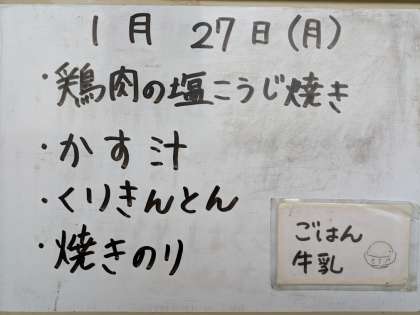 1月 27日(月)
・鶏肉の塩こうじ焼き
・かす汁
・くりきんとん
・焼きのり
ごはん
牛乳